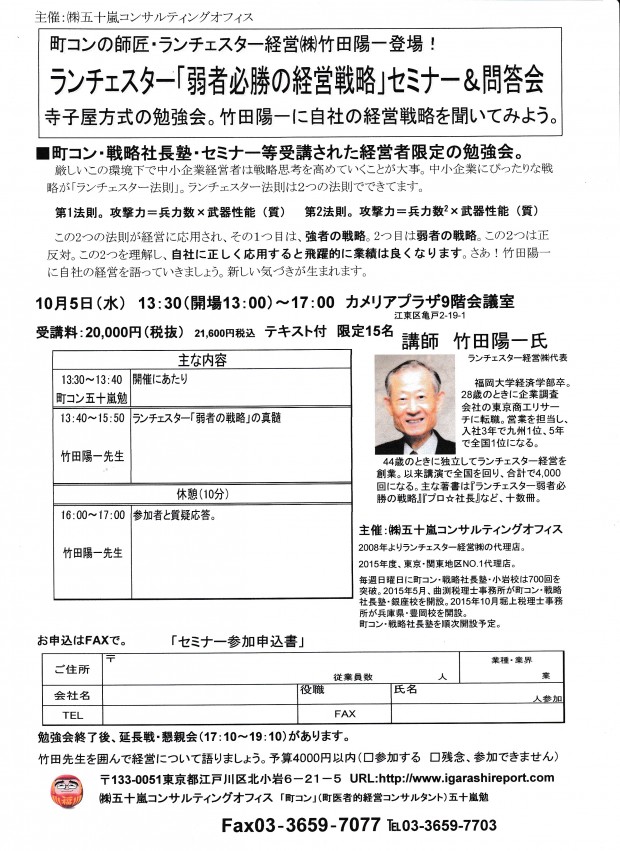 主催：㈱五十嵐コンサルティングオフィス
町コンの師匠・ランチェスター経営㈱竹田陽一登場！
ランチェスター「弱者必勝の経営戦略」セミナー＆問答会
寺子屋方式の勉強会。竹田陽一に自社の経営戦略を聞いてみよう。
■町コン・戦略社長塾・セミナー等受講された経営者限定の勉強会。
厳しいこの環境下で中小企業経営者は戦略思考を高めていくことが大事。中小企業にぴったりな戦
略が「ランチェスター法則」。ランチェスター法則は２つの法則でできてます。
第１法則。攻撃力＝兵力数×武器性能（質） 第２法則。攻撃力＝兵力数²×武器性能（質）
この２つの法則が経営に応用され、その１つ目は、強者の戦略。２つ目は弱者の戦略。この２つは正
反対。この２つを理解し、自社に正しく応用すると飛躍的に業績は良くなります。さあ！竹田陽一
に自社の経営を語っていきましょう。新しい気づきが生まれます。
10月5日（水） 13:30（開場13:00）～17:00 カメリアプラザ9階会議室
江東区亀戸2-19-1
受講料：20,000円（税抜） 21,600円税込 テキスト付 限定15名
講師 竹田陽一氏
主な内容
13:30～13:40 開催にあたり
町コン五十嵐勉
13:40～15:50 ランチェスター「弱者の戦略」の真髄
竹田陽一先生
休憩（10分）
16:00～17:00 参加者と質疑応答。
竹田陽一先生
ランチェスター経営㈱代表
福岡大学経済学部卒。
28歳のときに企業調査
会社の東京商工リサー
チに転職。営業を担当し、
入社3年で九州1位、5年
で全国1位になる。
44歳のときに独立してランチェスター経営を
創業。以来講演で全国を回り、合計で4,000
回になる。主な著書は『ランチェスター弱者必
勝の戦略』『プロ☆社長』など、十数冊。
主催：㈱五十嵐コンサルティングオフィス
2008年よりランチェスター経営㈱の代理店。
2015年度、東京・関東地区NO.1代理店。
毎週日曜日に町コン・戦略社長塾・小岩校は700回を
突破。2015年5月、曲渕税理士事務所が町コン・戦略
社長塾・銀座校を開設。2015年10月堀上税理士事務
所が兵庫県・豊岡校を開設。
町コン・戦略社長塾を順次開設予定。
お申込はFAXで。 「セミナー参加申込書」
ご住所 〒 従業員数 人 業種・業界 業
会社名 役職 氏名 人参加
TEL FAX
勉強会終了後、延長戦・懇親会（17:10～19:10）があります。
竹田先生を囲んで経営について語りましょう。予算4000円以内（□参加する □残念、参加できません）
〒133-0051東京都江戸川区北小岩６－２１－５ URL:http://www.igarashireport.com
㈱五十嵐コンサルティングオフィス 「町コン」（町医者的経営コンサルタント）五十嵐勉
Fax03-3659-7077 ℡03-3659-7703